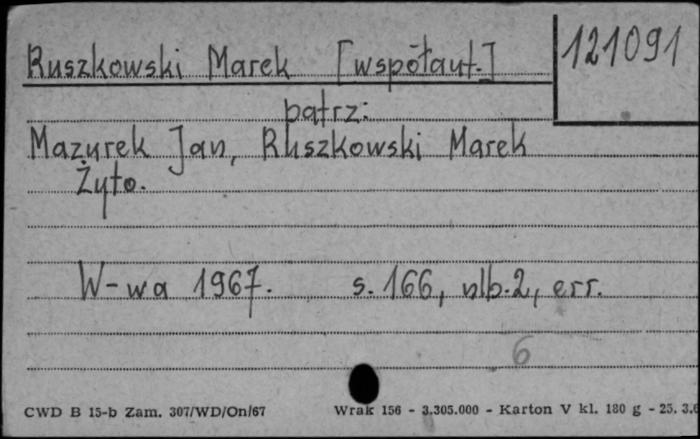 Ruszkowski Marek [współaut.]
121091
patrz:
Mazurek Jan, Ruszkowski Marek
Żyto.
W-wa 1967. s. 166, nlb. 2, err.
6
CWD B 15-b Zam. 307/WD/On/67 Wrak 156 - 3.305.000 - Karton V kl. 180 g - 25. 3.6